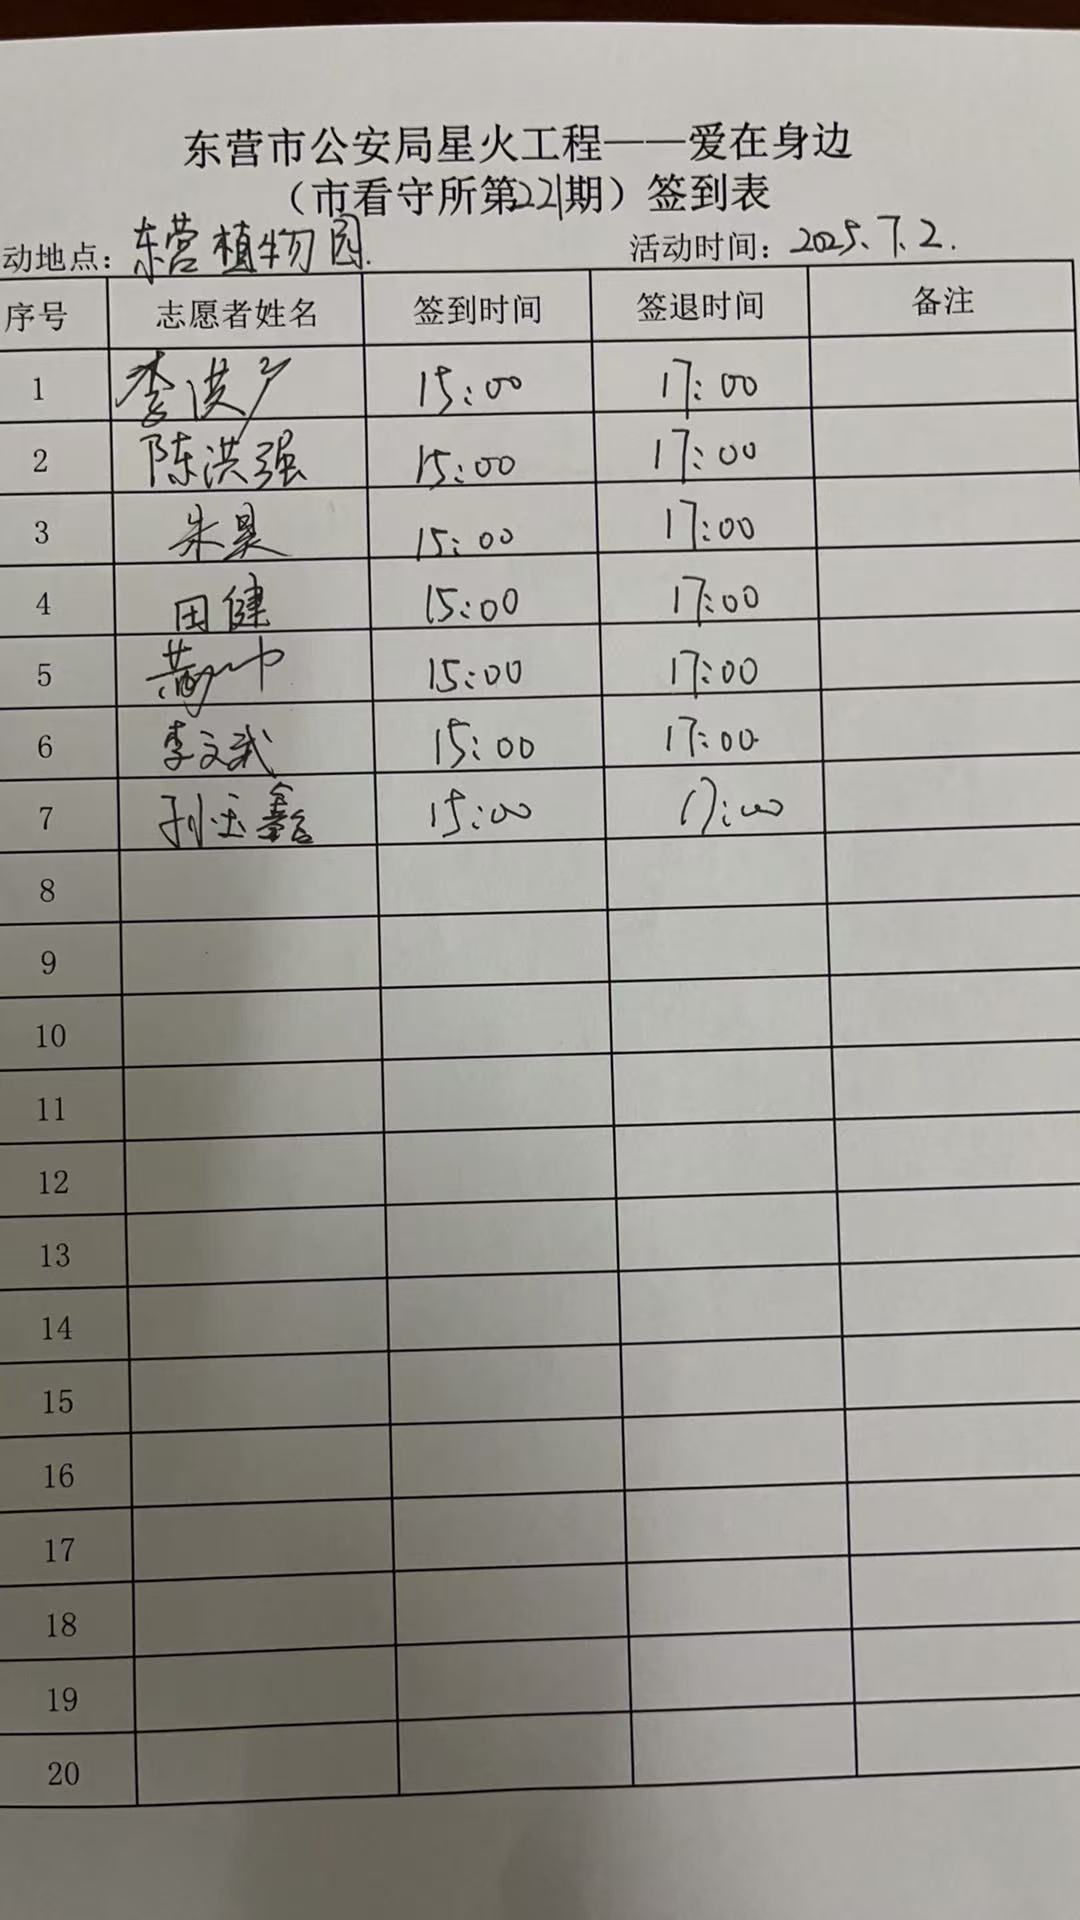 东营市公安局星火工程——爱在身边
（市看守所第221期）签到表
动地点：东营植物园. 活动时间：2025.7.2.
序号 志愿者姓名 签到时间 签退时间 备注
1 李洪广 15:00 17:00
2 陈洪强 15:00 17:00
3 朱昊 15:00 17:00
4 田健 15:00 17:00
5 15:00 17:00
6 李文武 15:00 17:00
7 孙玉鑫 15:00 17:00
8
9
10
11
12
13
14
15
16
17
18
19
20